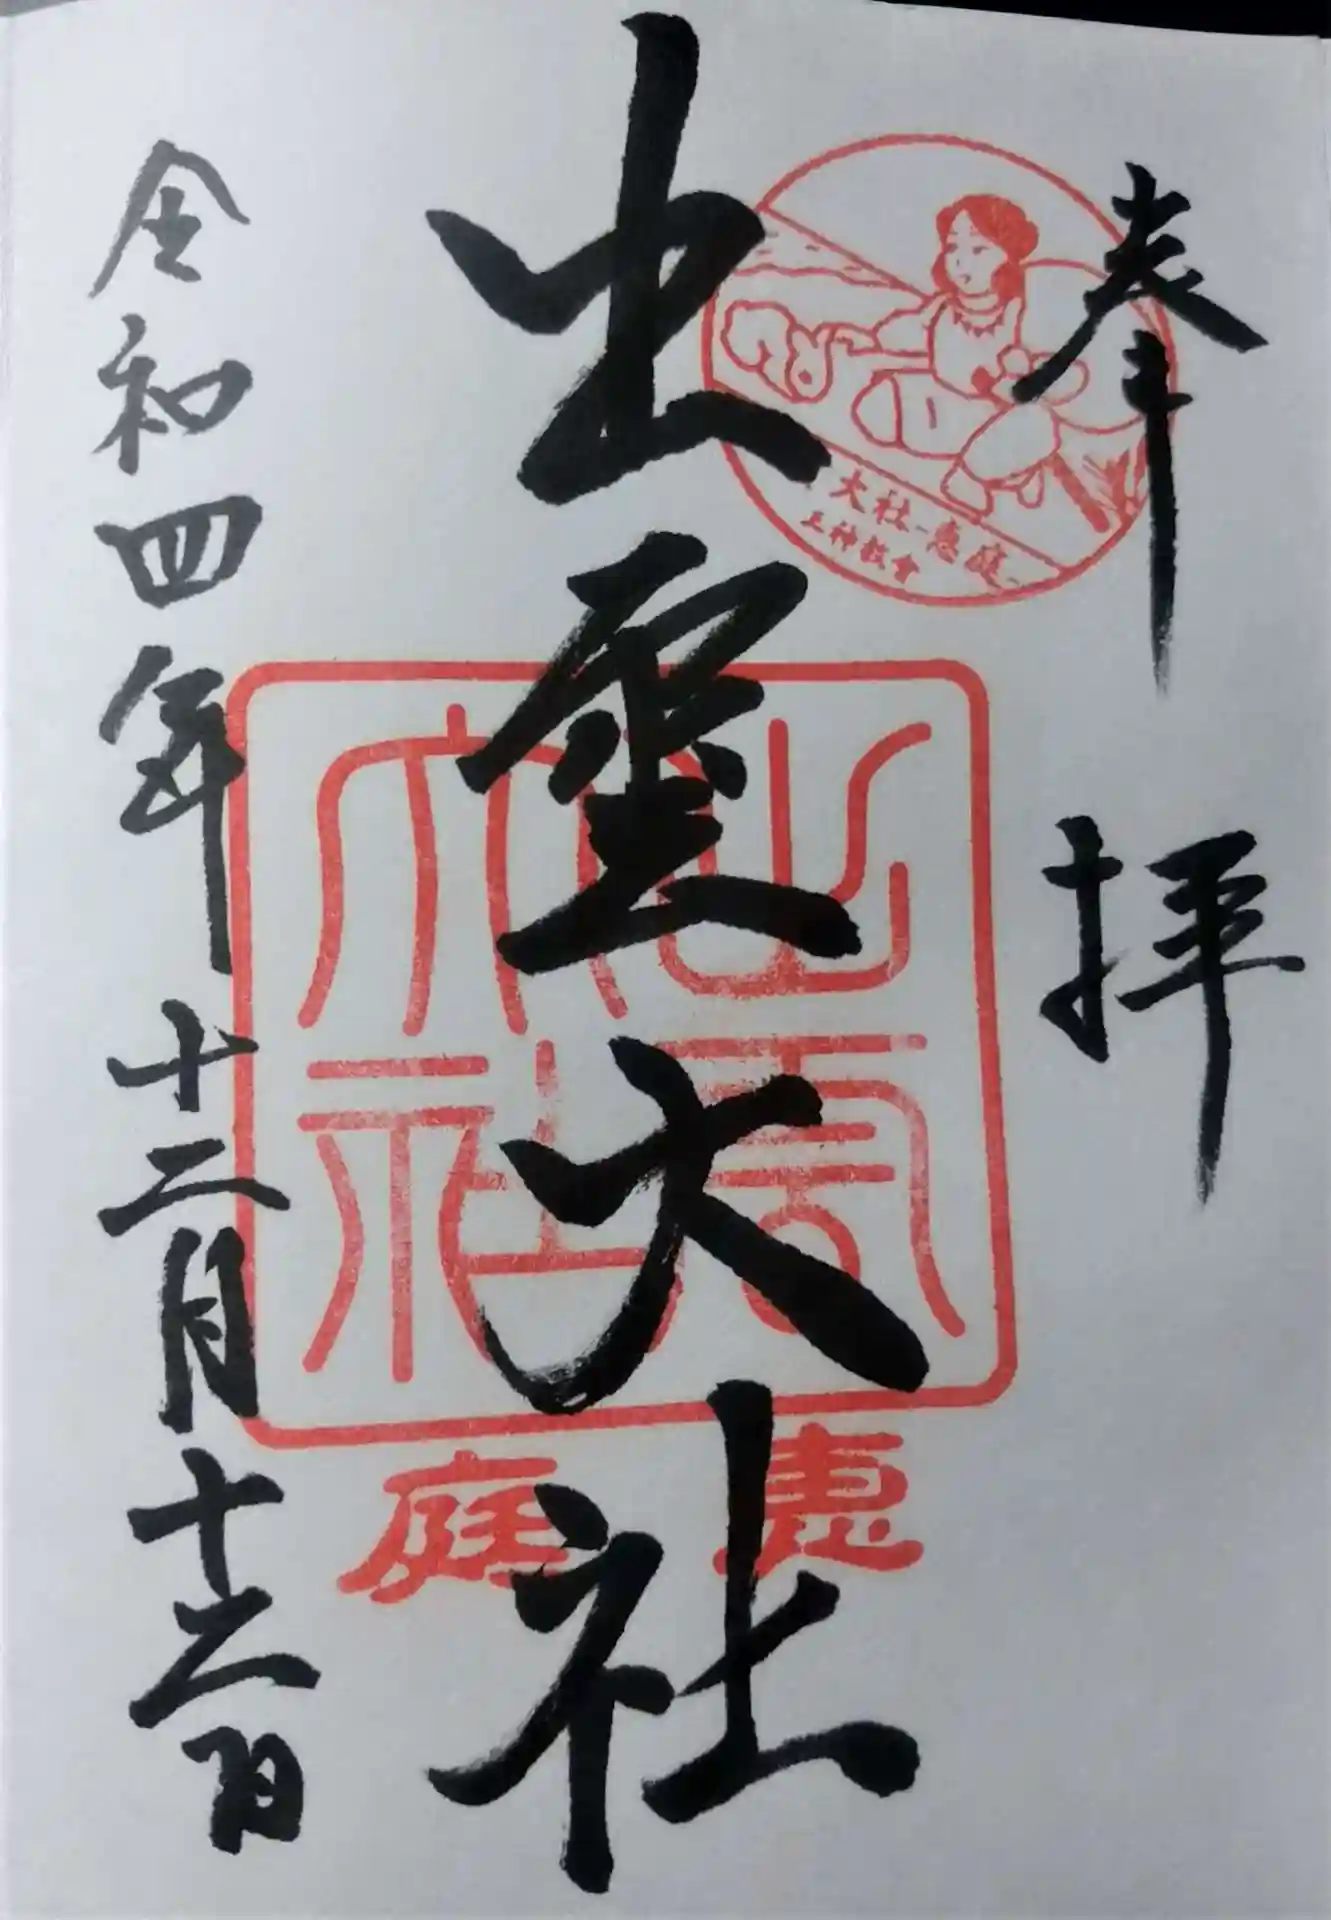 奉拝
大社 恵庭
三神教會
出雲大社
出雲大社
恵庭
令和四年十二月十二日